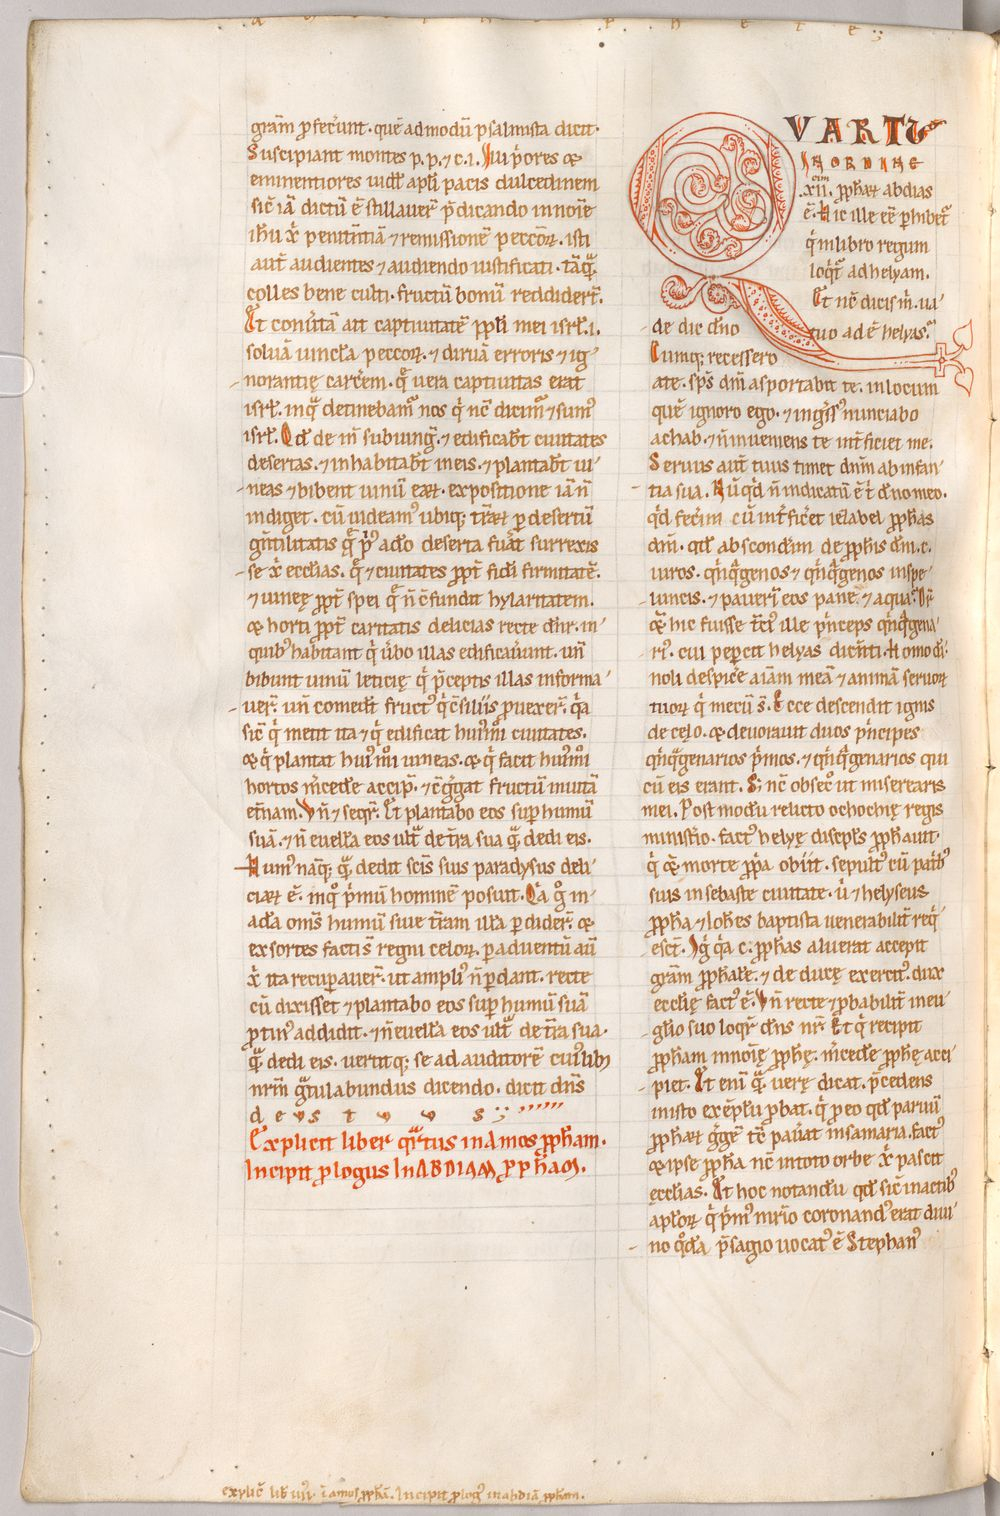 grãm ꝓferunt. quẽadmodũ psalmista dicit.
Suscipiant montes p. p. ⁊ c. i. Hui p̃ores &
eminentiores uidẽt apl̃i pacis dulcedinem
sic̃ iã dictũ ẽ stillauer̃ p̃dicando in noĩe
ih̃u x̃ penitẽtiã ⁊ remissionẽ peccoꝝ. isti
aut̃ audientes ⁊ audiendo iustificati. tãq̃
colles bene culti. fructũ bonũ reddider̃.
Et conũtã att captiuitatẽ ppl̃i mei isrl̃. i.
soluã uincl̃a peccoꝝ. ⁊ diruã erroris ⁊ ig
norantię carcẽm. q̃ uera captiuitas erat
isrl̃. in q̃ detinebam᷒ nos q̃ nc̃ dicim᷒ ⁊ sum᷒
isrl̃. Qđ de iñ subiung̃. ⁊ edificab̃t ciuitates
desertas. ⁊ inhabitab̃t in eis. ⁊ plantab̃t ui
neas ⁊ bibent uinũ eaꝝ. expositione iã ñ
indiget. cũ uideam᷒ ubiq; tr̃aꝝ ꝑ desertũ
gñtilitatis q̃ p᷒ a dõ deserta fuãt surrexis
se x̃ eccl̃ias. q̃ ⁊ ciuitates ꝓpt̃ fidei firmitatẽ.
⁊ uineę ꝓpt̃ spei q̃ ñ c̃fundit hylaritatem.
& horti ꝓpt̃ caritatis delicias recte dñr. in
quib᷒ habitant q̃ ũbo illas edificaũunt. uñ
bibunt uinũ leticię q̃ p̃ceptis illas informa
uer̃. uñ comedẽt fruct᷒ q̃ c̃siliis ꝓuexer̃. q̃a
sic̃ q̃ metit ita ⁊ q̃ edificat hui᷒m̃i ciuitates.
& q̃ plantat hui᷒ m̃i uineas. & q̃ facit hui᷒m̃i
hortos m̃cedẽ accip̃. ⁊ c̃g̃gat fructũ in uitã
et̃nam. Vñ ⁊ seqr̃. Et plantabo eos suꝑ humũ
suã. ⁊ ñ euellã eos ult̃ de t̃ra sua q̃ dedi eis.
Hum᷒ nãq; q̃ dedit sc̃is suis paradysus deli
ciaꝝ ẽ. in q̃ p̃mũ hominẽ posuit. Ca g̃ in
adã om̃s humũ siue t̃ram illã ꝑdider̃. &
exsortes facti s̃ regni celoꝝ. ꝑ aduentũ aũ
x̃ ita recuꝑauer̃. ut ampli᷒ ñ ꝑdant. recte
cũ dixisset ⁊ plantabo eos suꝑ humũ suã
ꝓtin᷒ addidit. ⁊ ñ euellã eos ult̃ de t̃ra sua.
q̃ dedi eis. uertitq; se ad auditorẽ cui᷒lib;
nr̃m g̃tulabundus dicendo. dicit dñs
deus tuus;
Explicit liber quartus in Amos ꝓph̃am.
Incipit ꝓlogus In ABDIAM PROPHAM.
VARTU
IN ORDINE
.xii.cim ꝓph̃aꝝ abdias
ẽ. Hic ille eẽ ꝑhibet̃
q̃ in libro regum
loqt̃ ad helyam.
Et nc̃ dicis m̃. ua
de dic dño tuo adẽ helyas.
Cumq; recessero
a te. sp̃s dñi asportabit te. in locum
quẽ ignoro ego. ⁊ ingr̃ss᷒ nunciabo
achab. ⁊ ñ inueniens te int̃ficiet me.
Seruus aut̃ tuus timet dñm ab infan
tia sua. Nũqd̃ ñ indicatũ ẽ t̃ dño meo.
qd̃ fecĩm cũ int̃ficẽt iezabel ꝓph̃as
dñi. qđ absconđim de ꝓph̃is dñi. c.
uiros. qñq̃genos ⁊ qñq̃genos in spe
luncis. ⁊ paueri eos pane. ⁊ aqua. Dr̃
& hic fuisse t̃ci᷒ ille p̃nceps qñq̃gena
ri᷒. cui peꝑcit helyas dicẽti. Homo di
noli despicẽ aĩam meã ⁊ animã seruoꝝ
tuoꝝ q̃ mecũ s̃. Ecce descendit ignis
de celo. & deuorauit duos p̃ncipes
qñq̃genarios p̃mos. ⁊ qñq̃genarios qui
cũ eis erant. S; nc̃ obsec̃o ut miserearis
mei. Post modũ relicto ochozię regis
ministio. fact᷒ helyę discipl̃s ꝓph̃auit.
q̃ & morte ꝓp̃a obiit. sepult᷒ cũ patrib᷒
suis in sebaste ciuitate. ũ ⁊ helyseus
ꝓph̃a ⁊ ioh̃es baptista uenerabilit̃ req̃
esct̃. Ig̃ q̃a c. ꝓph̃as aluerat accepit
grãm ꝓph̃alẽ. ⁊ de ducę exercit᷒. dux
ecclię fact᷒ ẽ. Vñ recte ⁊ ꝓbabilit̃ in eu
glio suo loqr̃ dñs nr̃. Et q̃ recipit
ꝓph̃am in noĩę ꝓph̃ę. m̃cedẽ ꝓph̃ę acci
piet. Et enĩ q̃ uerę dicat. p̃cedens
in isto exẽplũ ꝓbat. q̃ ꝑeo qđ paruũ
ꝓph̃aꝝ g̃gẽ t̃c pauat in samaria. fact᷒
& ipse ꝓph̃a nc̃ in toto orbe x̃ pascit
ęccl̃ias. Et hoc notandũ qđ sic̃ in actib᷒
apl̃oꝝ q̃ p̃m᷒ mr̃io coronand᷒ erat diui
no qd̃ã p̃sagio uocat᷒ ẽ Stephan᷒
explic̃ lib̃ iiii. ĩ amos ꝓph̃ã. Incipit ꝓlog᷒ in abdiã ꝓph̃am.